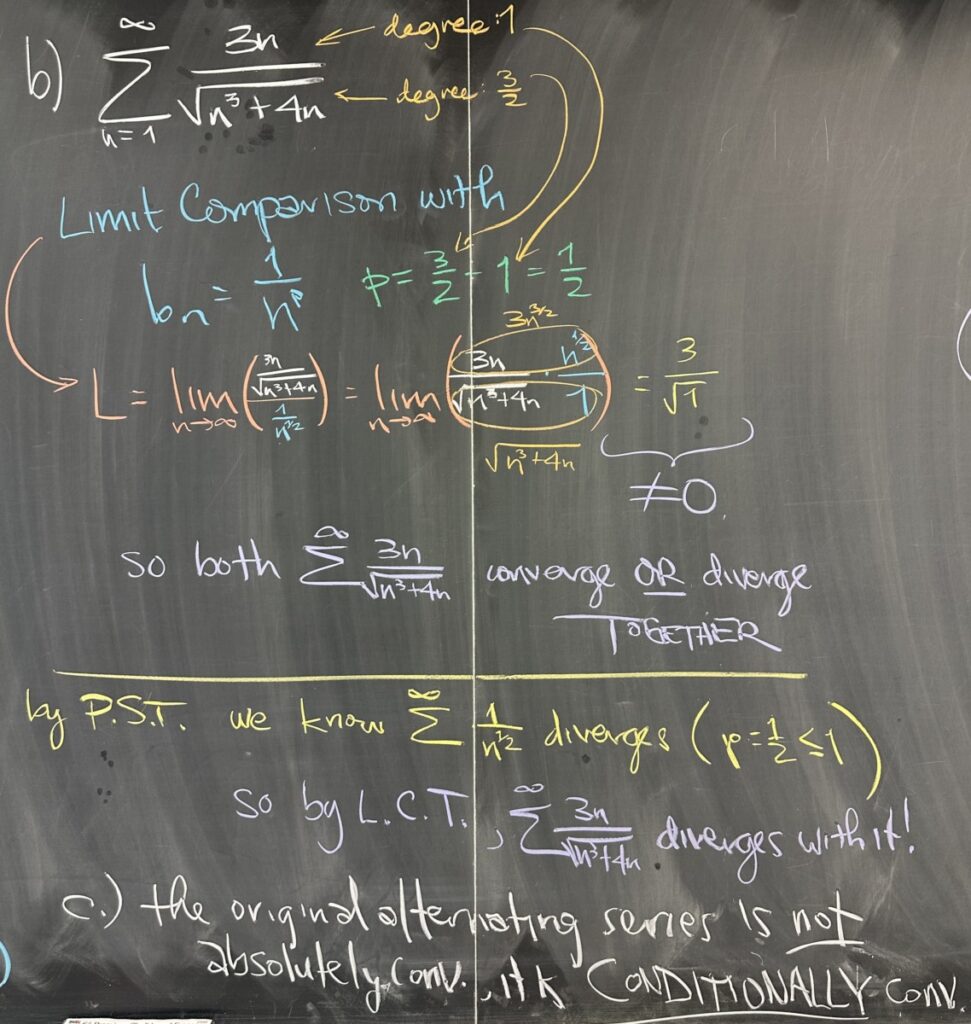 b) ∞ Σ n=1 3n / √(n³+4n) ← degree: 1
← degree: 3/2
Limit Comparison with
bₙ = 1/nᵖ p = 3/2 - 1 = 1/2
3n^(3/2)
L = lim n→∞ ( (3n/√(n³+4n)) / (1/n^(1/2)) ) = lim n→∞ ( 3n/√(n³+4n) · n^(1/2)/1 ) = 3/√1
√(n³+4n)
≠0.
so both ∞ Σ 3n/√(n³+4n) converge OR diverge
TOGETHER
by P.S.T. we know ∞ Σ 1/n^(1/2) diverges (p = 1/2 ≤ 1)
so by L.C.T., ∞ Σ 3n/√(n³+4n) diverges with it!
c.) the original alternating series is not
absolutely conv., it is CONDITIONALLY conv.